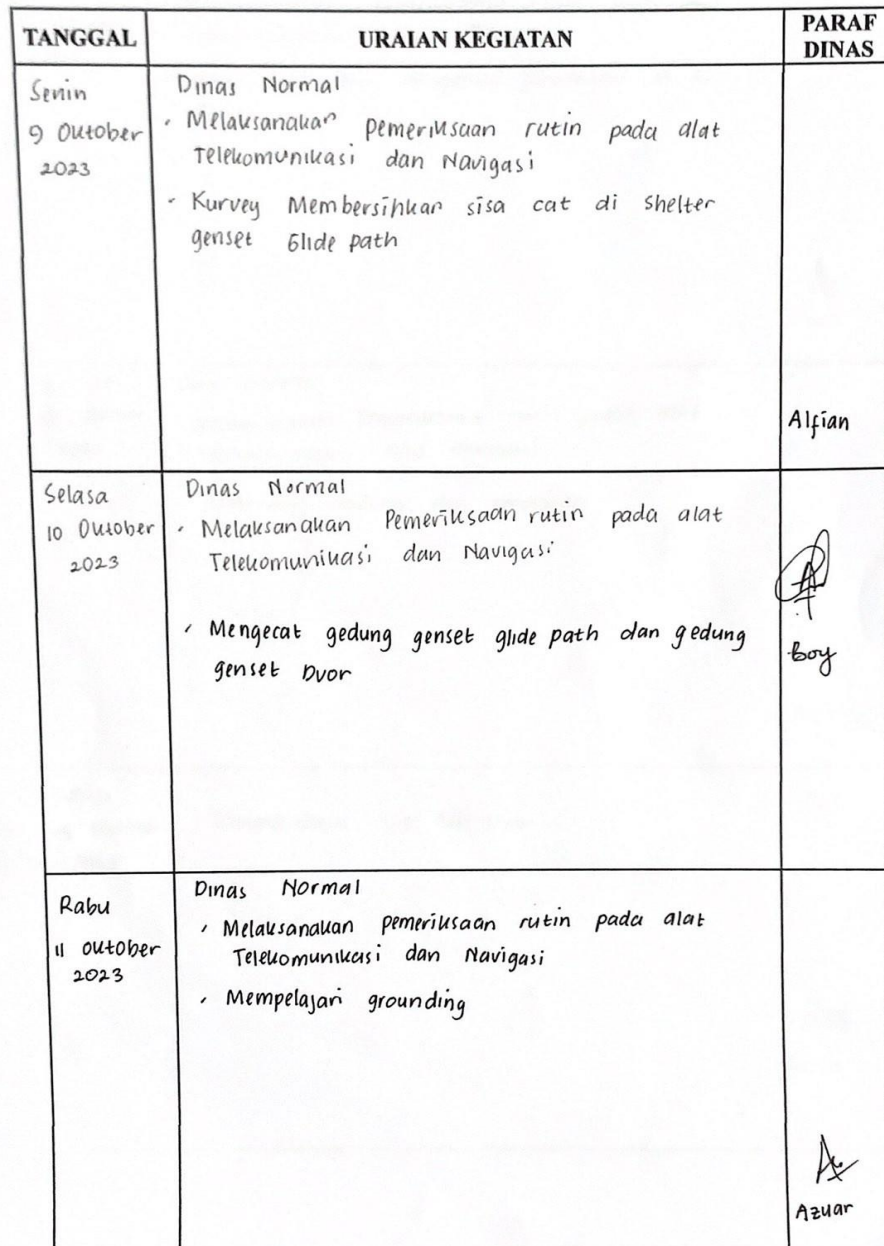 TANGGAL
URAIAN KEGIATAN
PARAF
DINAS
Senin
9 Oktober
2023
Dinas Normal
Melaksanakan pemeriksaan rutin pada alat
Telekomunikasi dan Navigasi
Kurvey Membersihkan sisa cat di Shelter
genset Glide path
Alfian
Selasa
10 Oktober
2023
Dinas Normal
Melaksanakan Pemeriksaan rutin pada alat
Telekomunikasi dan Navigasi
Mengecat gedung genset glide path dan gedung
genset Dvor
Boy
Rabu
11 Oktober
2023
Dinas Normal
Melaksanakan pemeriksaan rutin pada alat
Telekomunikasi dan Navigasi
Mempelajari grounding
Azuar